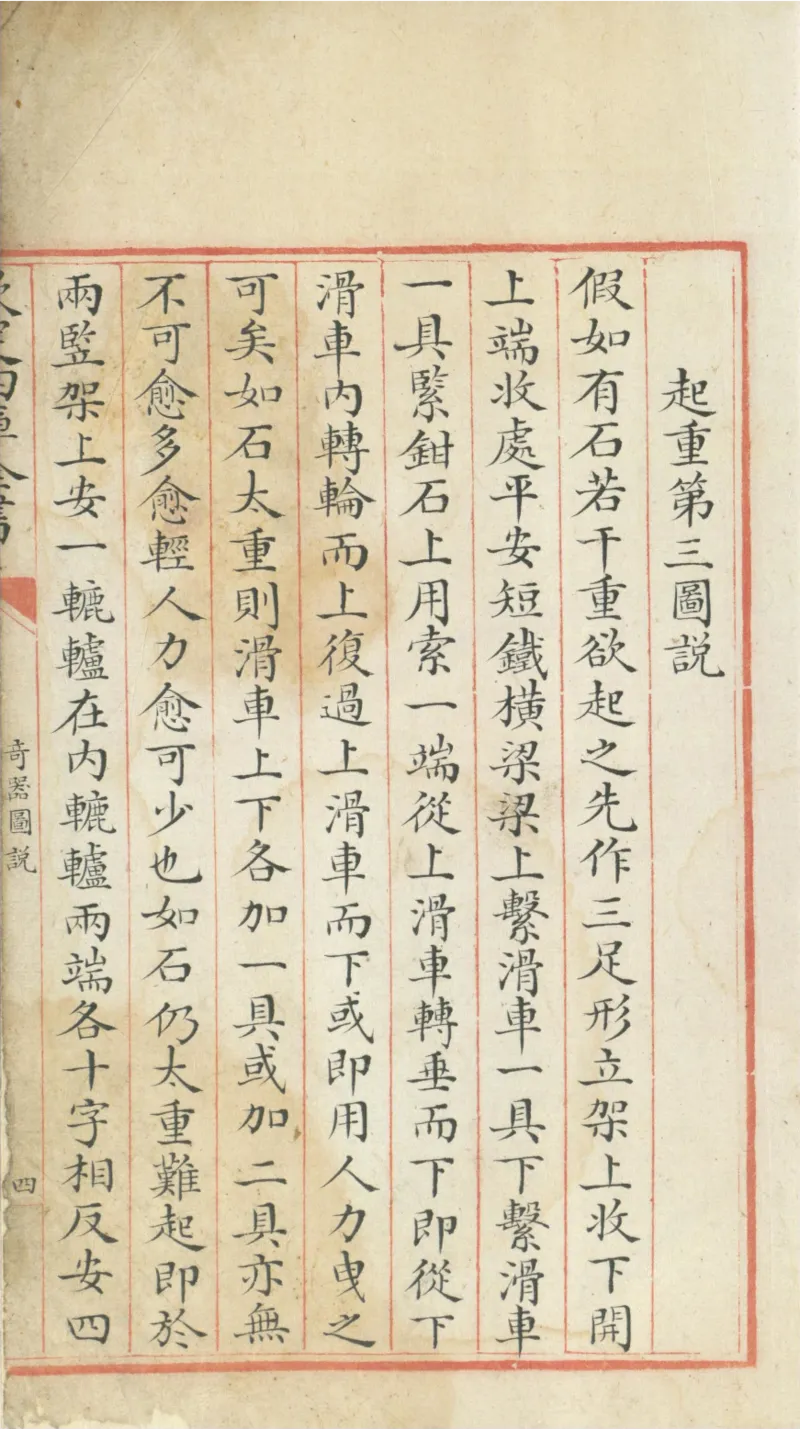 起重第三圖説
假如有石若干重欲起之先作三足形立架上收下開
上端收處平安短鐵横梁梁上繫滑車一具下繫滑車
一具緊鉗石上用索一端從上滑車轉垂而下即從下
滑車内轉輪而上復過上滑車而下或即用人力曳之
可矣如石太重則滑車上下各加一具或加二具亦無
不可愈多愈輕人力愈可少也如石仍太重難起即於
兩竪架上安一轆轤在内轆轤兩端各十字相反安四
欽定四庫全書
奇器圖説
四